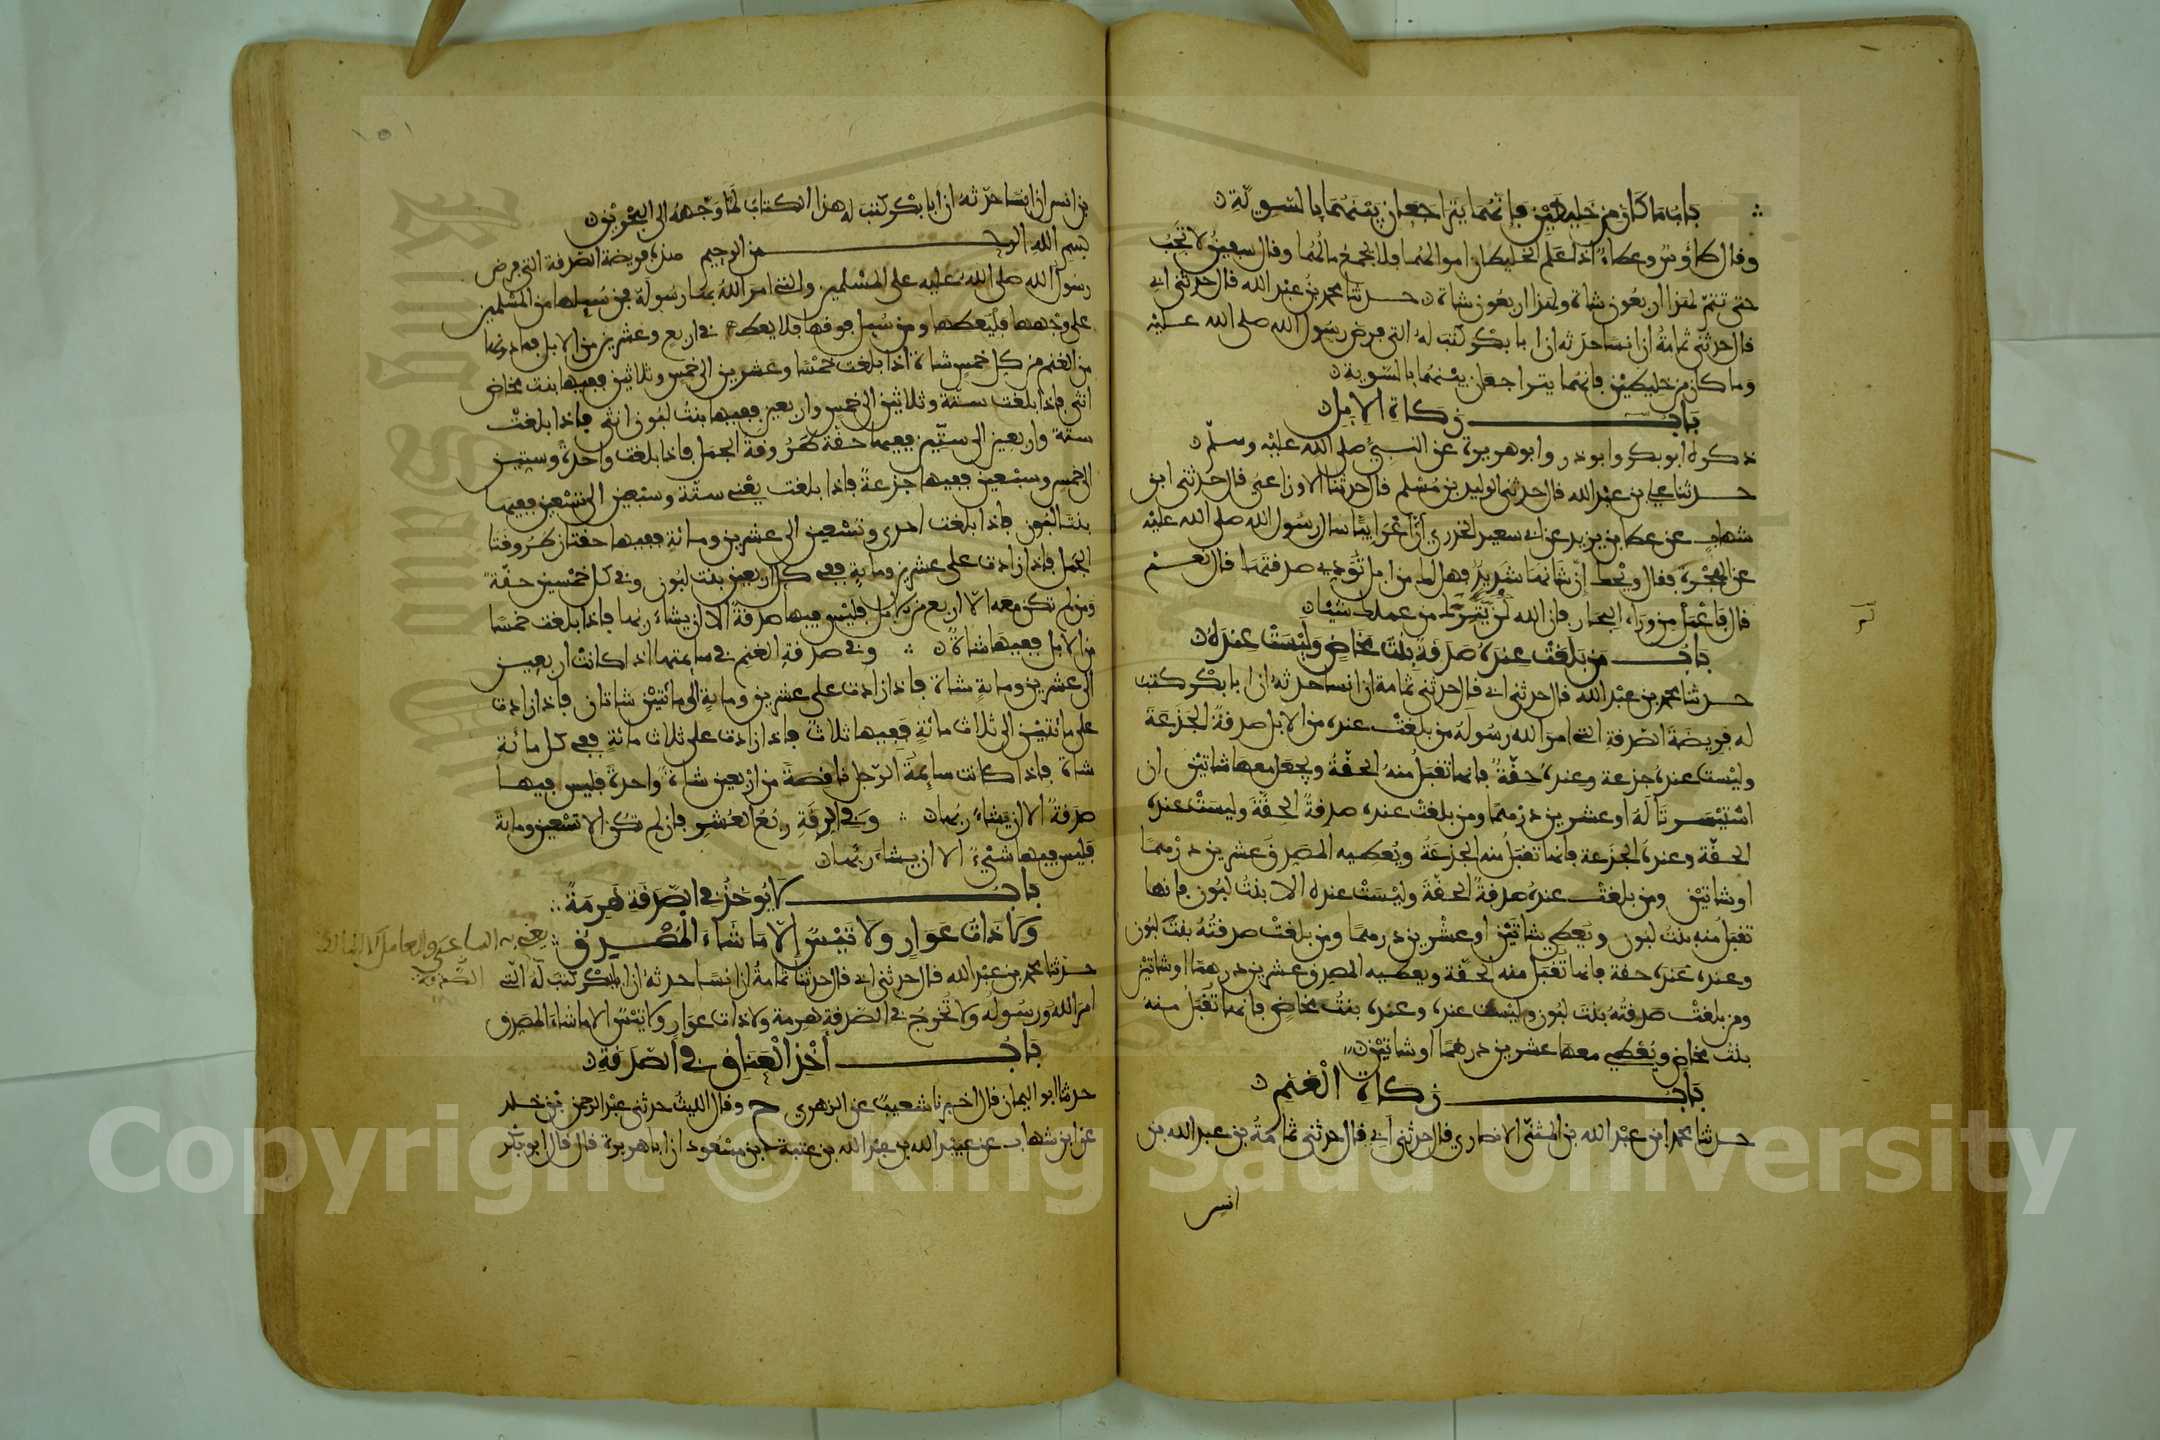 باب ما كان من خليطين فإنهما يتراجعان بينهما بالسوية
وقال طاوس وعطاء اذا علم الخليطان اموالهما فلا يجمع مالهما وقال سفين لا تجب
حتى تتم لهذا اربعون شاة ولهذا اربعون شاة حدثنا محمد بن عبد الله قال حدثني ابي
قال حدثني ثمامة ان انسا حدثه ان ابا بكر كتب له التي فرض رسول الله صلى الله عليه
وما كان من خليطين فانهما يتراجعان بينهما بالسوية
باب زكاة الابل
ذكره ابو بكر وابو ذر وابو هريرة عن النبي صلى الله عليه وسلم
حدثنا علي بن عبد الله قال حدثني الوليد بن مسلم قال حدثنا الاوزاعي قال حدثني ابن
شهاب عن عطا بن يزيد عن ابي سعيد الخدري ان اعرابيا سال رسول الله صلى الله عليه
عن الهجرة فقال ويحك ان شانها شديد فهل لك من ابل تودي صدقتها قال نعم
قال فاعمل من وراء البحار فان الله لن يترك من عملك شيا
باب من بلغت عنده صدقة بنت مخاض وليست عنده
حدثنا محمد بن عبد الله قال حدثني ابي قال حدثني ثمامة ان انسا حدثه ان ابا بكر كتب
له فريضة الصدقة التي امر الله رسوله من بلغت عنده من الابل صدقة الجذعة
وليست عنده جذعة وعنده حقة فانها تقبل منه الحقة ويجعل معها شاتين ان
استيسرتا له او عشرين درهما ومن بلغت عنده صدقة الحقة وليست عنده
الحقة وعنده الجذعة فانها تقبل منه الجذعة ويعطيه المصدق عشرين درهما
او شاتين ومن بلغت عنده صدقة الحقة وليست عنده الا بنت لبون فانها
تقبل منه بنت لبون ويعطي شاتين او عشرين درهما ومن بلغت صدقته بنت لبون
وعنده عنده حقة فانها تقبل منه الحقة ويعطيه المصدق عشرين درهما او شاتين
ومن بلغت صدقته بنت لبون وليست عنده وعنده بنت مخاض فانها تقبل منه
بنت مخاض ويعطي معها عشرين درهما او شاتين
باب زكاة الغنم
حدثنا محمد ابن عبد الله بن المثنى الانصاري قال حدثني ابي قال حدثني ثمامة بن عبد الله بن
انس
١٥١
بن انس ان انسا حدثه ان ابا بكر كتب له هذا الكتاب لما وجهه الى البحرين
بسم الله الرحمن الرحيم هذه فريضة الصدقة التي فرض
رسول الله صلى الله عليه على المسلمين والتي امر الله بها رسوله فمن سيلها من المسلمين
على وجهها فليعطها ومن سيل فوقها فلا يعط في اربع وعشرين من الابل فما دونها
من الغنم من كل خمس شاة اذا بلغت خمسا وعشرين الى خمس وثلاثين ففيها بنت مخاض
انثى فاذا بلغت ستة وثلاثين الى خمس واربعين ففيها بنت لبون انثى فاذا بلغت
ستة واربعين الى ستين ففيها حقة طروقة الجمل فاذا بلغت واحدة وستين
الى خمس وسبعين ففيها جذعة فاذا بلغت يعني ستة وسبعين الى تسعين ففيها
بنتا لبون فاذا بلغت احدى وتسعين الى عشرين ومائة ففيها حقتان طروقتا
الجمل فاذا زادت على عشرين ومائة ففي كل اربعين بنت لبون وفي كل خمسين حقة
ومن لم تكن معه الا اربع من الابل فليس فيها صدقة الا ان يشاء ربها فاذا بلغت خمسا
من الابل ففيها شاة وفي صدقة الغنم في سائمتها اذا كانت اربعين
الى عشرين ومائة شاة فاذا زادت على عشرين ومائة الى مائتين شاتان فاذا زادت
على مائتين الى ثلاث مائة ففيها ثلاث فاذا زادت على ثلاث مائة ففي كل مائة
شاة فاذا كانت سائمة الرجل ناقصة من اربعين شاة واحدة فليس فيها
صدقة الا ان يشاء ربها وفي الرقة ربع العشر فان لم تكن الا تسعين ومائة
فليس فيها شيء الا ان يشاء ربها
باب لا يؤخذ في الصدقة هرمة
ولا ذات عوار ولا تيس الا ما شاء المصدق
يعني به الساعي والعامل
حدثنا محمد بن عبد الله قال حدثني ابي قال حدثنا ثمامة ان انسا حدثه ان ابا بكر كتب له التي
امر الله ورسوله ولا تخرج في الصدقة هرمة ولا ذات عوار ولا تيس الا ما شاء المصدق
باب اخذ العناق في الصدقة
حدثنا ابو اليمان قال اخبرنا شعيب عن الزهري ح وقال الليث حدثني عبد الرحمن بن خالد
عن ابن شهاب عن عبيد الله بن عبد الله بن عتبة بن مسعود ان ابا هريرة قال قال ابو بكر
King Saud University
Copyright © King Saud University